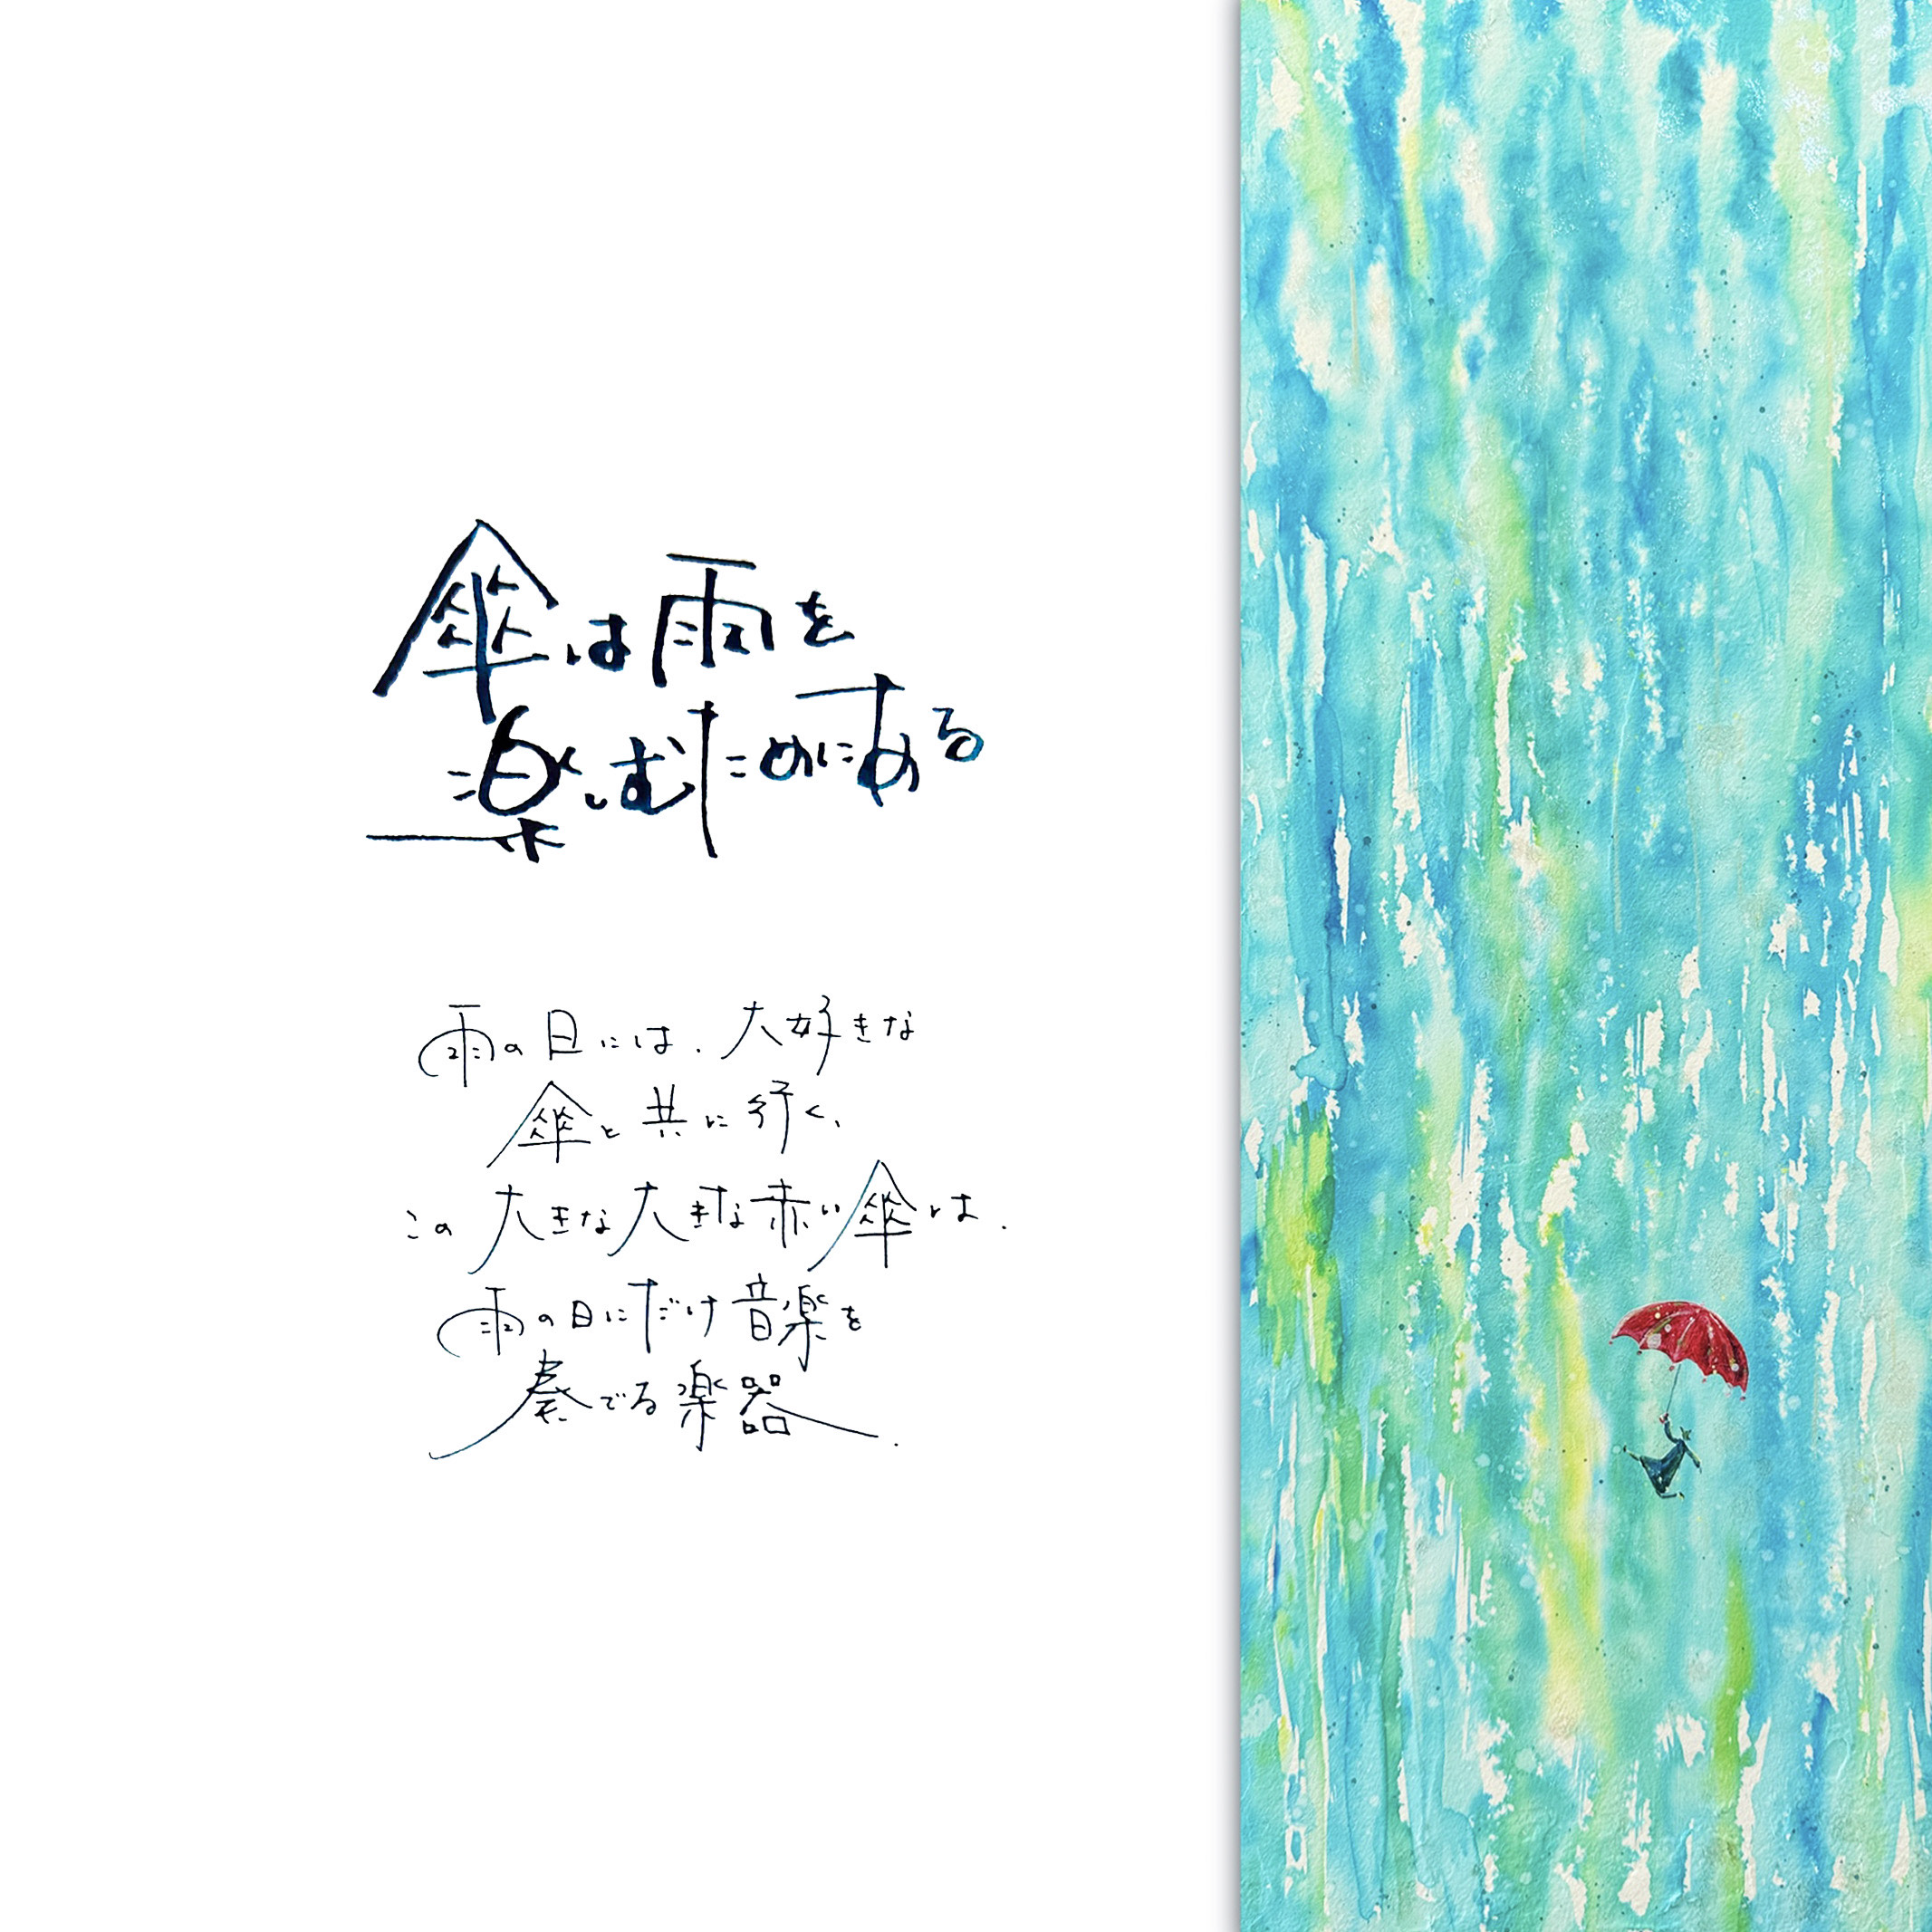 傘は雨を
楽しむためにある
雨の日には、大好きな
傘と共に行く、
この大きな大きな赤い傘は、
雨の日にだけ音楽を
奏でる楽器、